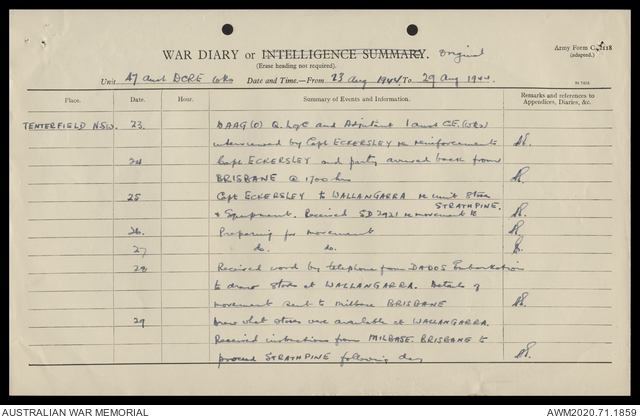 WAR DIARY or INTELLIGENCE SUMMARY. Original
Army Form C. 2118
(adapted.)
(Erase heading not required).
Unit 47 Aust DCRE Wks Date and Time.—From 23 Aug 1944 To 29 Aug 1944.
Place. Date. Hour. Summary of Events and Information. Remarks and references to Appendices, Diaries, &c.
TENTERFIELD N.S.W. 23. DAAG (O) Q. L of C and Adjutant 1 Aust C.E. (Wks)
interviewed by Capt ECKERSLEY re reinforcements
24 Capt ECKERSLEY and party arrived back from
BRISBANE @ 1700 hrs
25 Capt ECKERSLEY to WALLANGARRA re unit stores
& Equipment. Received SD 2921 re movement to STRATHPINE.
26. Preparing for movement
27 do. do.
28 Received word by telephone from DADOS Embarkation
to draw stores at WALLANGARRA. Details of
movement sent to Milbase BRISBANE
29 Drew what stores were available at WALLANGARRA.
Received instructions from MILBASE BRISBANE to
proceed STRATHPINE following day
AUSTRALIAN WAR MEMORIAL AWM2020.71.1859